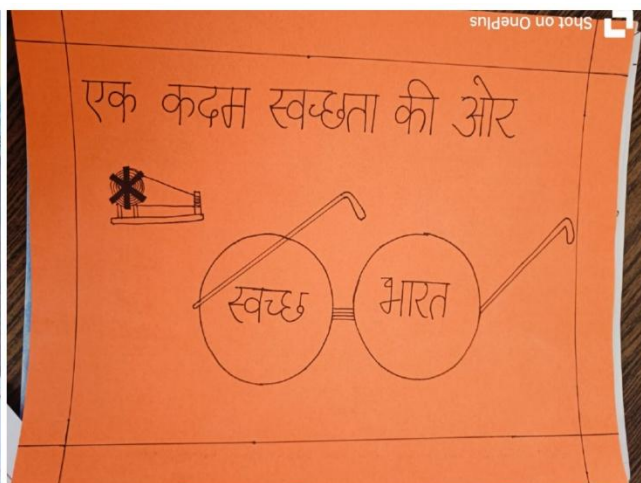 Shot on OnePlus
एक कदम स्वच्छता की ओर
स्वच्छ भारत